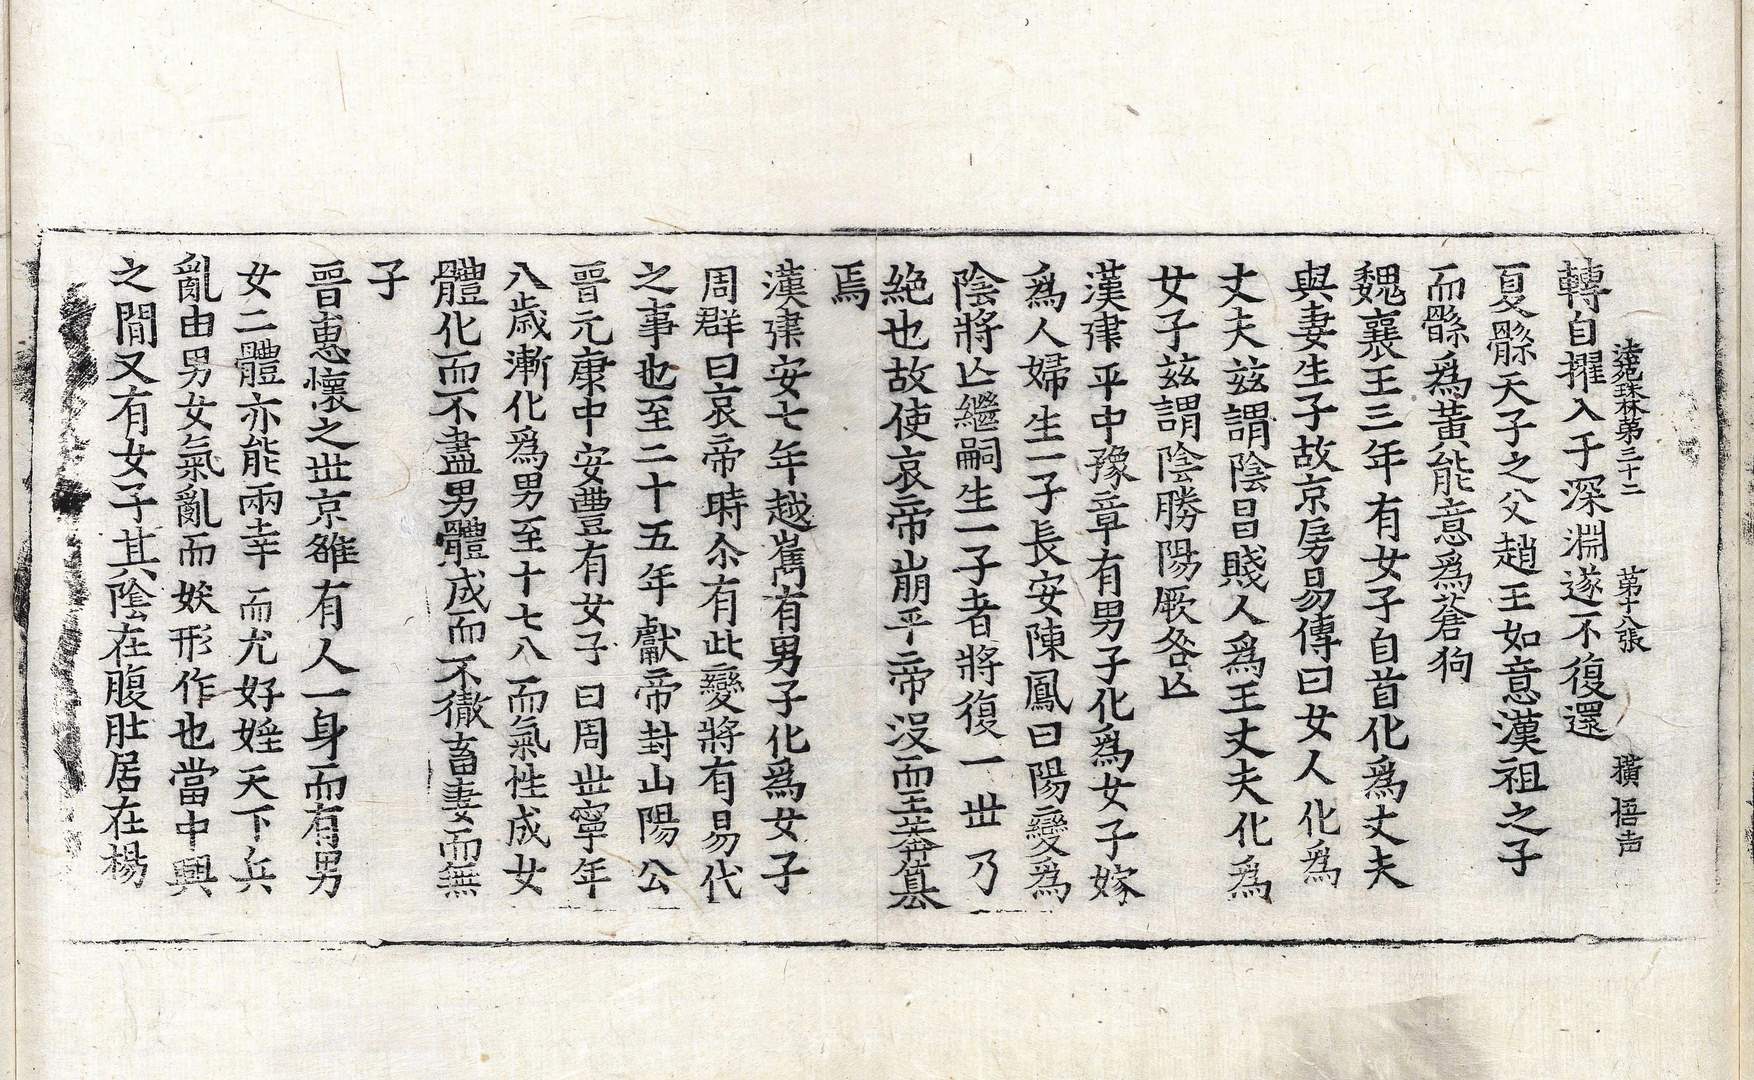 法苑珠林第三十二 第十八張 橫 悟声
轉自擢入于深淵遂不復還
夏縣天子之父趙王如意漢祖之子
而縣爲黃能意爲蒼狗
魏襄王三年有女子自首化爲丈夫
與妻生子故京房易傳曰女人化爲
丈夫玆謂陰昌賤人爲王丈夫化爲
女子玆謂陰勝陽厥咎亾
漢建平中豫章有男子化爲女子嫁
爲人婦生一子長安陳鳳曰陽變爲
陰將亾繼嗣生一子者將復一丗乃
絕也故使哀帝崩平帝沒而王莽篡
焉
漢建安七年越嶲有男子化爲女子
周群曰哀帝時尒有此變將有易代
之事也至二十五年獻帝封山陽公
晉元康中安豐有女子曰周丗寧年
八歲漸化爲男至十七八而氣性成女
體化而不盡男體成而不徹畜妻而無
子
晉惠懷之丗京雒有人一身而有男
女二體亦能兩幸而尤好婬天下兵
亂由男女氣亂而妖形作也當中興
之間又有女子其陰在腹肚居在楊